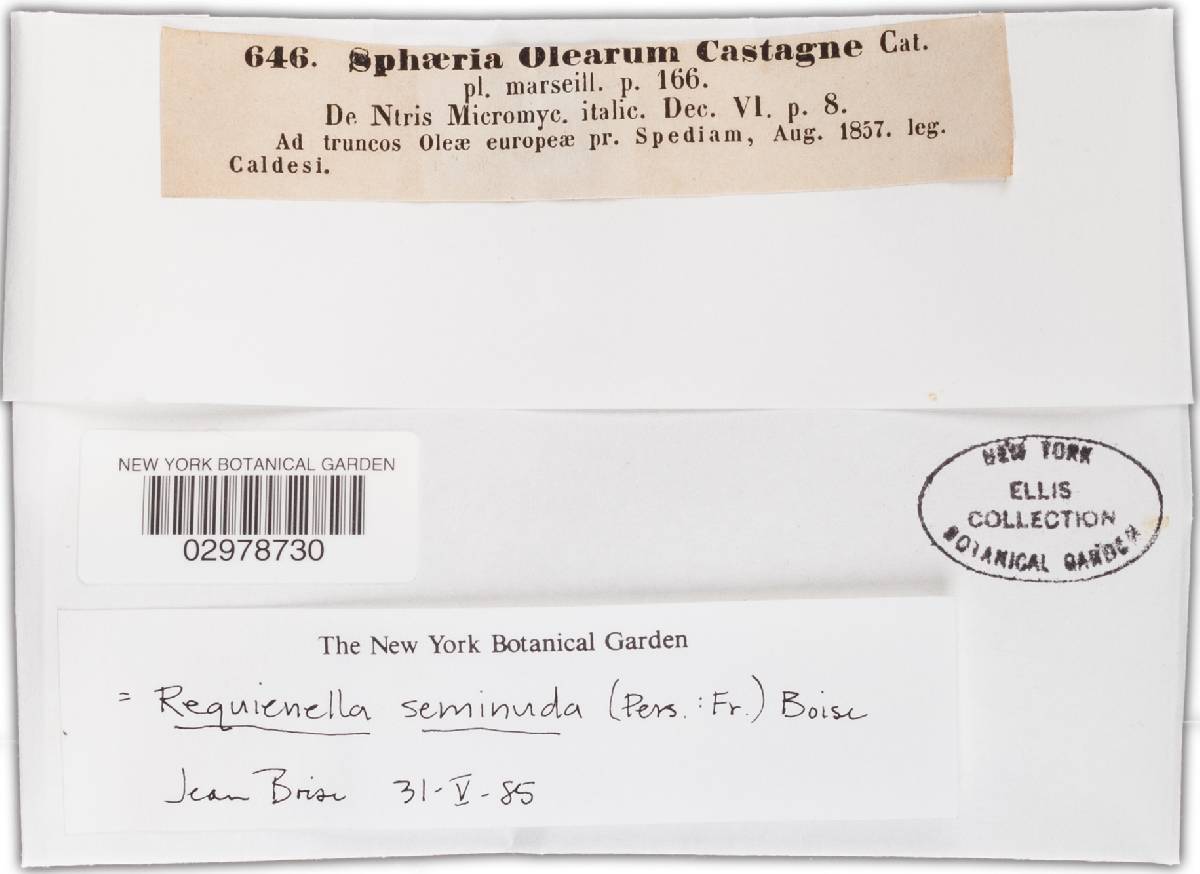 646. Sphæria Olearum Castagne Cat.
pl. marseill. p. 166.
De Ntris Micromyc. italic. Dec. VI. p. 8.
Ad truncos Oleæ europeæ pr. Spediam, Aug. 1857. leg.
Caldesi.
NEW YORK BOTANICAL GARDEN
02978730
NEW YORK
ELLIS
COLLECTION
BOTANICAL GARDEN
The New York Botanical Garden
= Requienella seminuda (Pers. : Fr.) Boise
Jean Boise 31-V-85